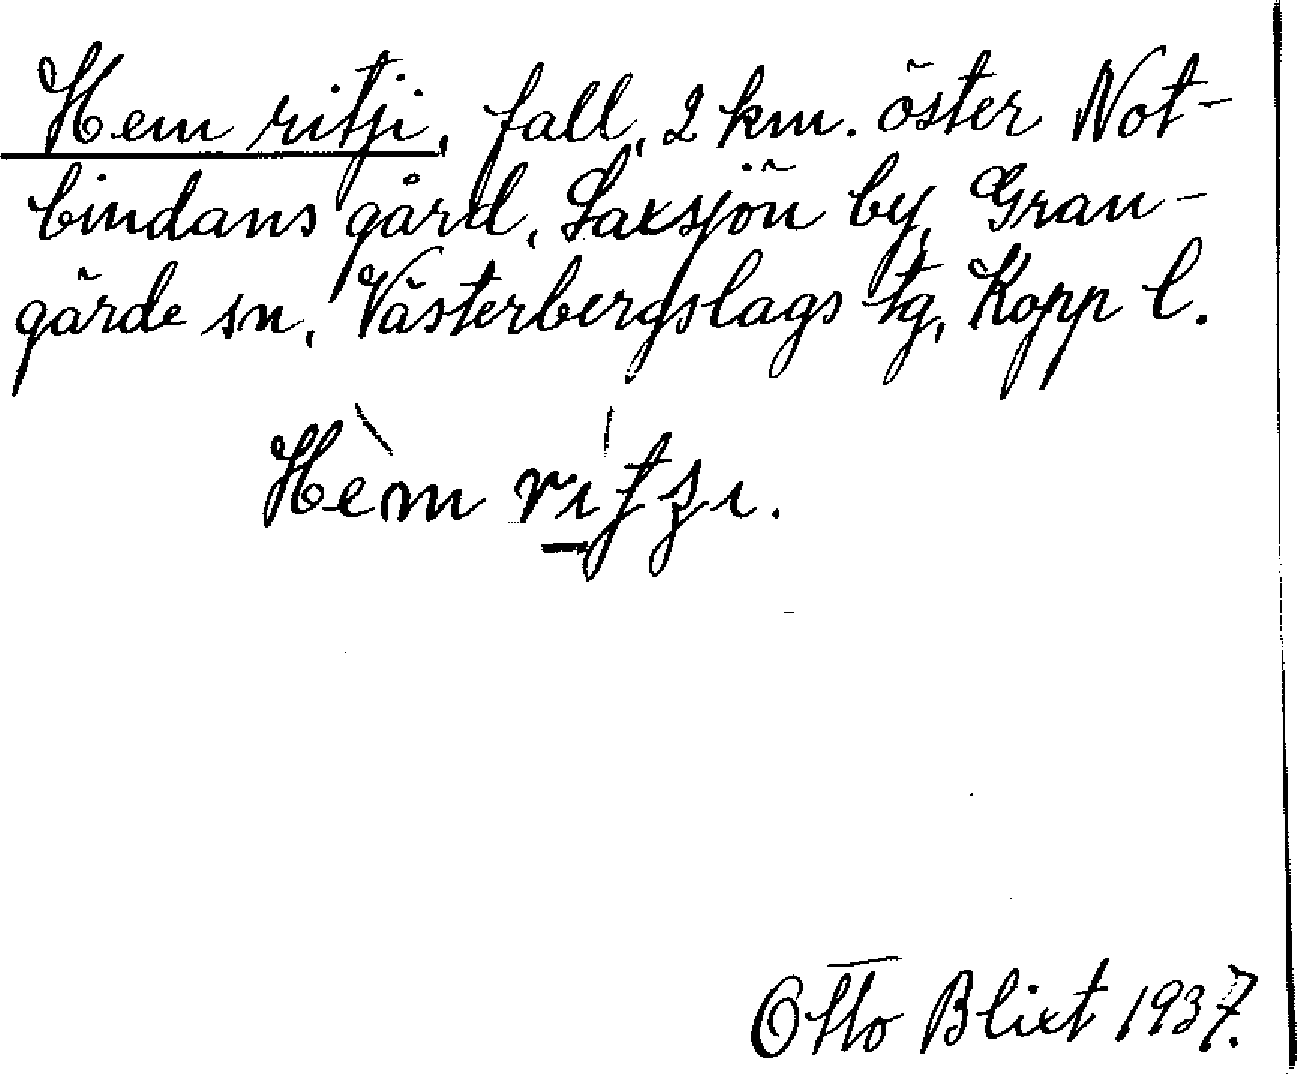 Hem ritji, fall, 2 km. öster Not-
bindans gård, Saxsjön by, Gran-
gärde sn, Västerbergslags tg, Kopp l.
Hèm ritʒı.
Otto Blixt 1937.